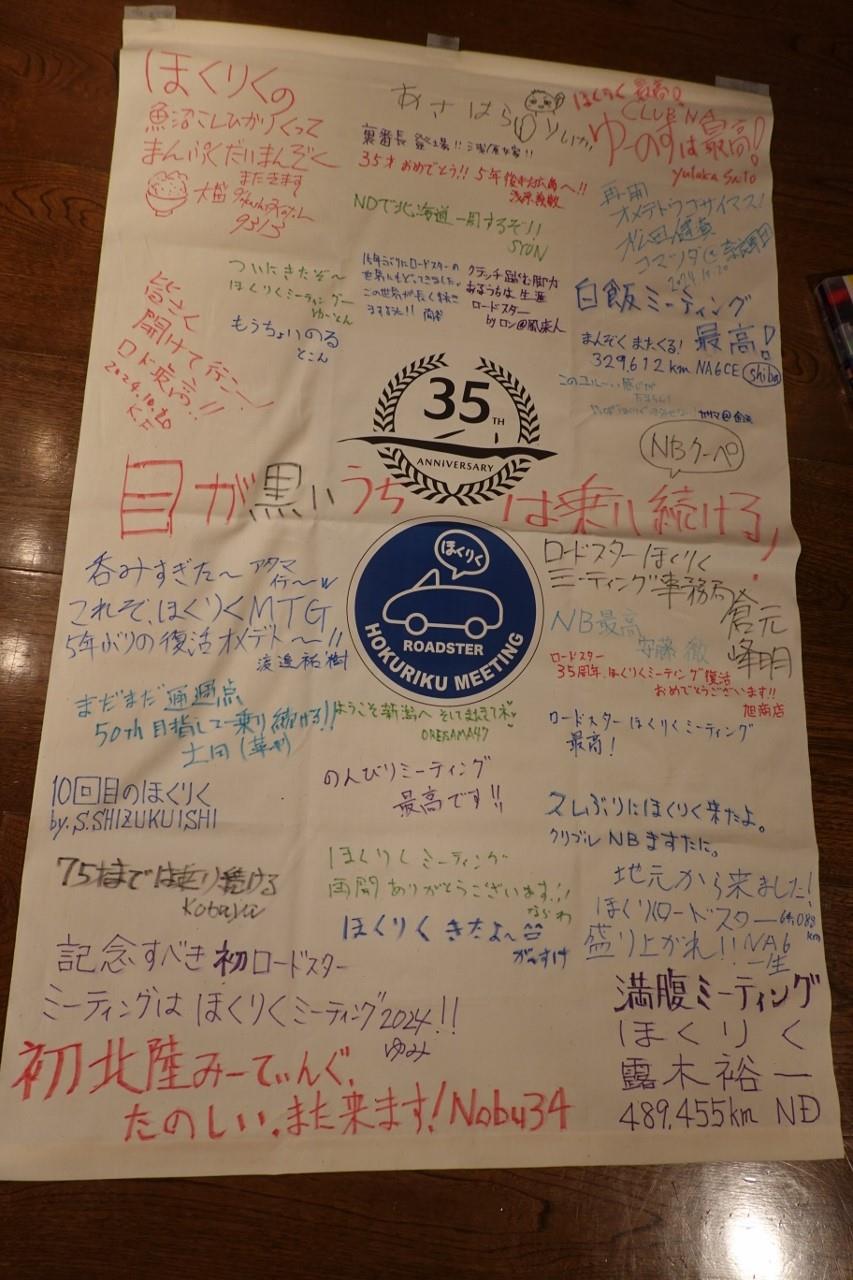 ほくりくの
魚沼こしひかりくって
まんぷくだいまんぞく
またきます
大盛
93/3
あさはらゆりいか
裏番長 登場!!
35才おめでとう!! 5年後も広島へ!!
NDで北海道一周するぞ!!
SYUN
ほくりく最高!
CLUB NA
ゆーのすは最高!
yutaka Saito
再開
オメデトウゴザイマス!
2024.10.20
ついにきたぞ〜
ほくりくミーティングー
ゆーとん
もうちょいのる
とこん
15年ぶりにロードスターの
世界にもどってきました。
この世界が長く続き
ますように!!
クラッチ踏む脚力
あるうちは生涯
ロードスター
by ロン@風来人
白飯ミーティング
最高!
まんぞくまたくる!
329,612km NA6CE shiba
このユルーい感じが
皆さん
開けて行こー
ロド最高!!
2024.10.20
K.F
35TH
ANNIVERSARY
NBクーペ
目が黒いうちは乗り続ける!
呑みすぎた〜 アタマ
イテ〜w
これぞ、ほくりくMTG
5年ぶりの復活オメデト〜!!
渡邉祐樹
ほくりく
ROADSTER
HOKURIKU MEETING
ロードスターほくりく
ミーティング事務局
倉元
峰明
NB最高
安藤 徹
ロードスター
35周年、ほくりくミーティング復活
おめでとうございます!!
旭商店
まだまだ通過点
50th目指して乗り続ける!!
ようこそ新潟へ そしてまたきて
ORESAMA47
ロードスターほくりくミーティング
最高!
10回目のほくりく
by.S.SHIZUKUISHI
のんびりミーティング
最高です!!
ズレぶりにほくりく来たよ。
クリブルNBますたに。
75才までは走り続ける
Kobaya
ほくりくミーティング
再開ありがとうございます!!
ならわ
ほくりくきたよ〜
がんすけ
地元から来ました!
ほくりくロードスター
盛り上がれ!! NA6
一生
記念すべき初ロードスター
ミーティングはほくりくミーティング2024!!
ゆみ
満腹ミーティング
ほくりく
露木裕一
489,455km ND
初北陸みーてぃんぐ、
たのしい、また来ます! Nobu34